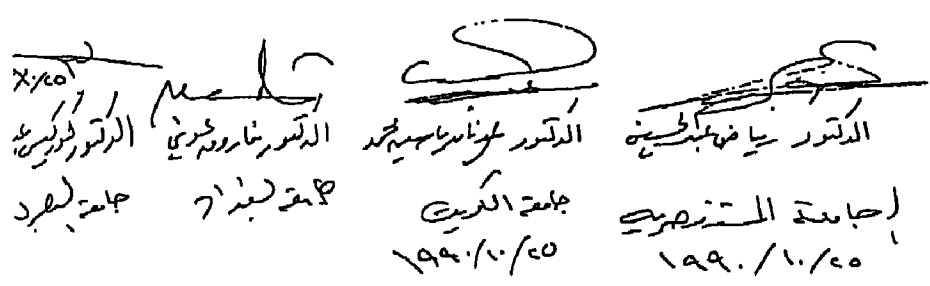 الدكتور رياض عبد الحسين
الجامعة المستنصرية
١٩٩٠/١٠/٢٥
الدكتور ياسين محمد
جامعة الكويت
١٩٩٠/١٠/٢٥
الدكتور فاروق عوني
جامعة بغداد
١٠/٢٥
الدكتور كوركيس
جامعة البصرة